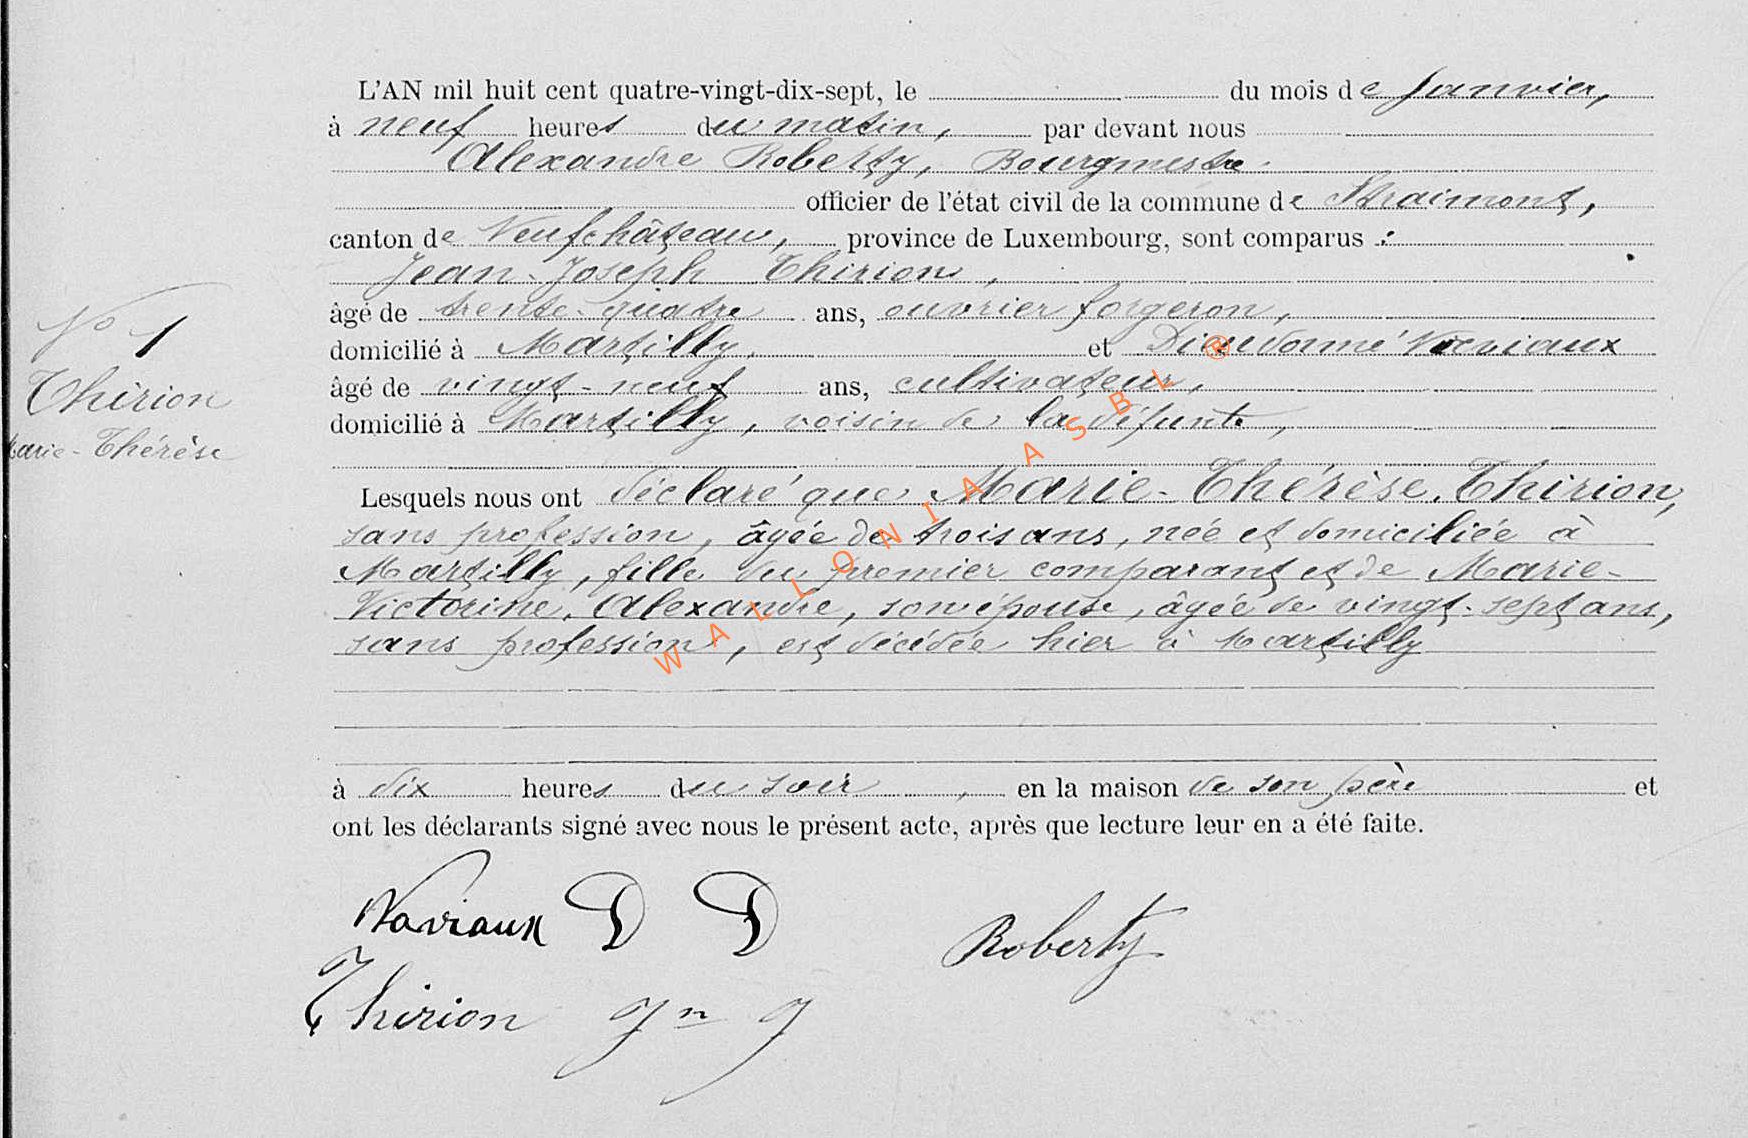 L'AN mil huit cent quatre-vingt-dix-sept, le du mois de Janvier,
à neuf heures du matin, par devant nous
Alexandre Roberty, Bourgmestre
officier de l'état civil de la commune de Straimont,
canton de Neufchâteau, province de Luxembourg, sont comparus :
Jean-Joseph Thirion,
âgé de trente-quatre ans, ouvrier forgeron,
domicilié à Martilly, et Dieudonné Naviaux
âgé de vingt-neuf ans, cultivateur,
domicilié à Martilly, voisin de la défunte,
N° 1
Thirion
Marie-Thérèse
Lesquels nous ont déclaré que Marie-Thérèse Thirion,
sans profession, âgée de trois ans, née et domiciliée à
Martilly, fille du premier comparant et de Marie-
Victorine Alexandre, son épouse, âgée de vingt-sept ans,
sans profession, est décédée hier à Martilly
à dix heures du soir, en la maison de son père et
ont les déclarants signé avec nous le présent acte, après que lecture leur en a été faite.
Naviaux D D
Roberty
Thirion Jn J
WALLONIA ASBL ®